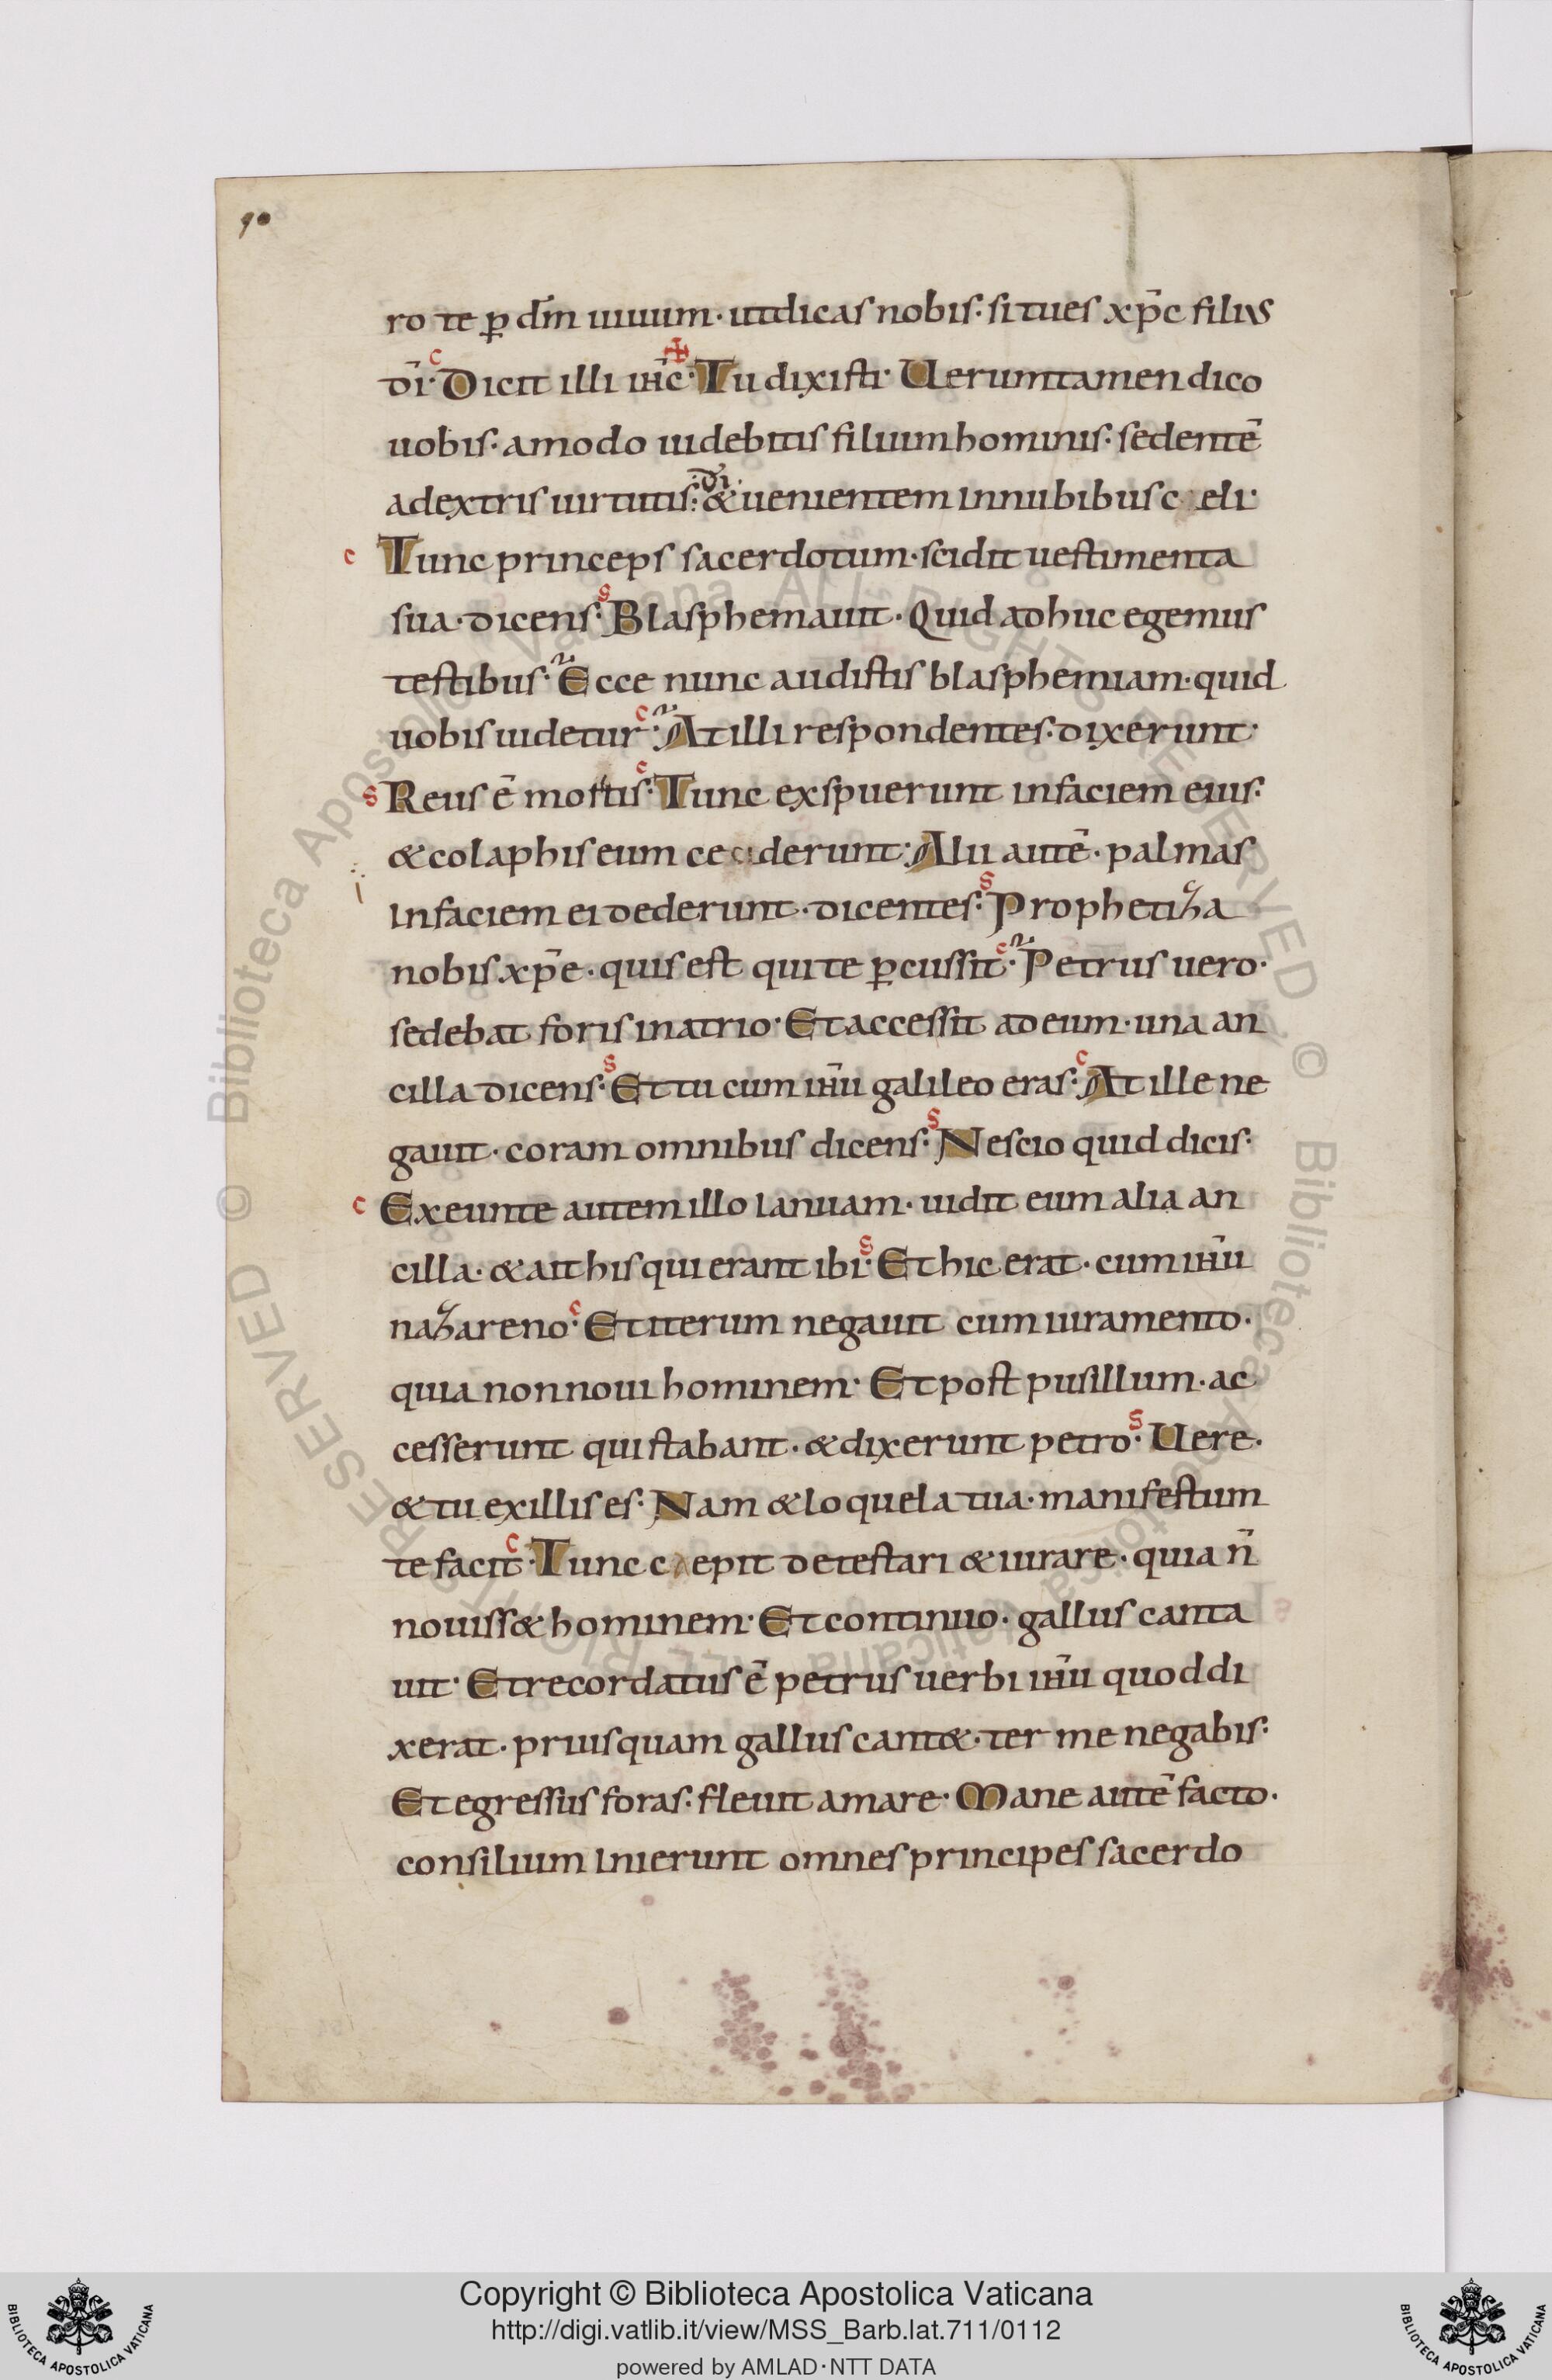 90
ro te ꝑ dm̄ uiuum· utdicas nobis· si tues xp̄c filius
dī· Dicit illi ih̄c· Tu dixisti· Uerumtamen dico
uobis· amodo uidebitis filium hominis· sedentē
adextris uirtutis· dī· & uenientem innubibus c eli·
c Tunc princeps sacerdotum· scidit uestimenta
sua· dicens· s Blasphemauit· Quid adhuc egemus
testibus· Ecce nunc audistis blasphemiam· quid
uobis uidetur· c At illi respondentes· dixerunt·
s Reus ē mortis· c Tunc exspuerunt infaciem eius·
& colaphis eum ceciderunt· Alii autē· palmas
infaciem ei dederunt· dicentes· s Prophetiza
nobis xp̄e· quis est qui te ꝑcussit· c Petrus uero·
sedebat foris inatrio· Et accessit ad eum· una an
cilla dicens· s Et tu cum ih̄u galileo eras· c At ille ne
gauit· coram omnibus dicens· s Nescio quid dicis·
c Exeunte autem illo ianuam· uidit eum alia an
cilla· & ait his qui erant ibi· s Et hic erat· cum ih̄u
nazareno· c Et iterum negauit cum iuramento·
quia non noui hominem· Et post pusillum· ac
cesserunt qui stabant· & dixerunt petro· s Uere·
& tu exillis es· Nam & loquela tua· manifestum
te facit· c Tunc c epit detestari & iurare· quia n̄
nouiss& hominem· Et continuo· gallus canta
uit· Et recordatus ē petrus uerbi ih̄u quod di
xerat· priusquam gallus cant&· ter me negabis·
Et egressus foras· fleuit amare· Mane autē facto·
consilium inierunt omnes principes sacerdo
Copyright © Biblioteca Apostolica Vaticana
http://digi.vatlib.it/view/MSS_Barb.lat.711/0112
powered by AMLAD·NTT DATA
BIBLIOTECA APOSTOLICA VATICANA
BIBLIOTECA APOSTOLICA VATICANA